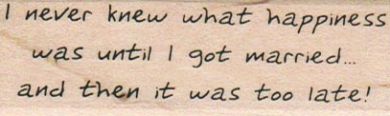 I never knew what happiness
was until I got married...
and then it was too late!